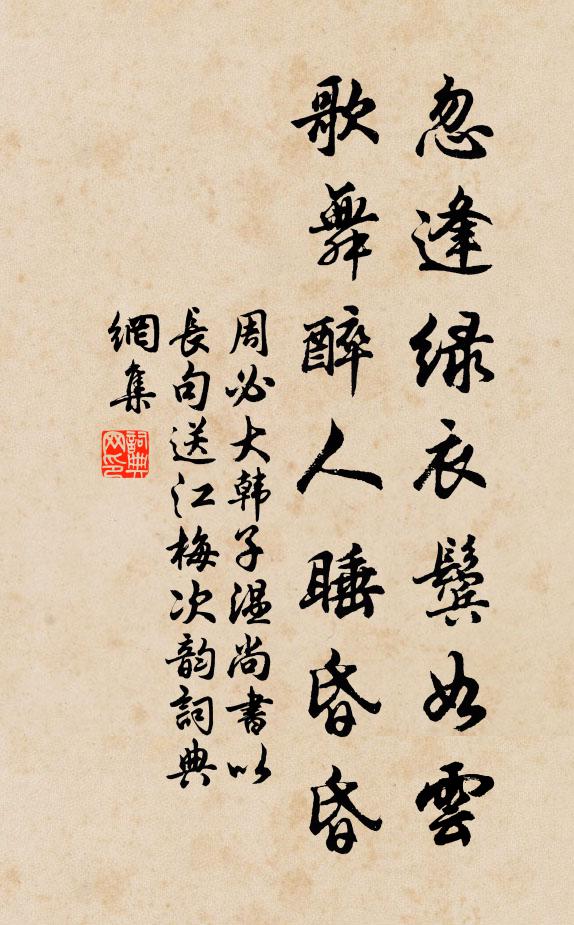 忽逢緑衣鬓如雲
歌舞醉人睡昏昏
周必大韩子温尚書以
長句送江梅次韵詞典
網集
詞典网印